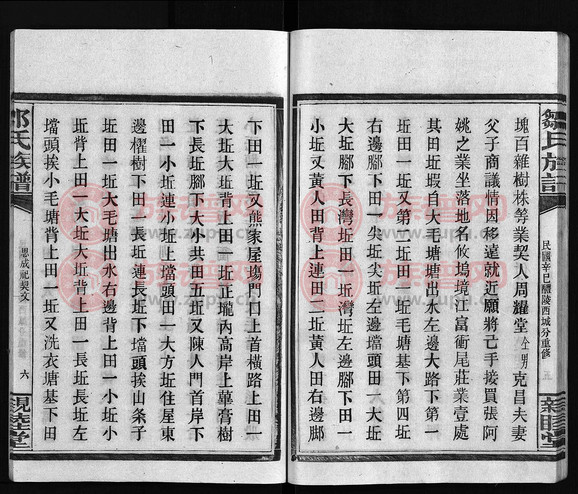 鄒氏族譜
民國辛巳醴陵西城分重修
五
親睦堂
塊百雜樹株等業契人周耀堂仝男克昌夫妻
父子商議情因移遠就近願將己手接買張阿
姚之業坐落地名攸塲境江富衝尾莊業壹處
其田坵塅自大毛塘塘出水左邊大路下第一
坵田一坵又第二坵田一坵毛塘基下第四坵
右邊脚下田一尖坵尖坵左邊田一坵長灣坵
大坵脚下長灣坵田一坵灣坵左邊田一坵又
小坵又黃人田背上連田二坵黃人田右邊脚
下田一坵又熊家屋塲門口上首橫路上田一
大坵大坵背上田一坵正壠內高岸上華膏樹
下長坵脚下大小共田五坵又陳人門首岸下
田一小坵連小坵上壋頭田一大方坵住屋東
邊櫂樹下田一長坵連長坵下壋頭挨山條子
坵田一坵大毛塘出水右邊背上田一小坵小
坵背上田一大坵大坵背上田一長坵長坵左
壋頭挨小毛塘背上田一坵又洗衣塘基下田
鄒氏族譜
思成祀契文
六
親睦堂